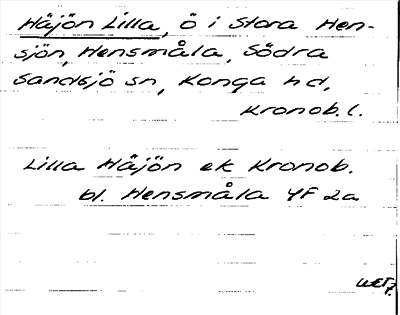 Håjön Lilla, ö i Stora Hen-
sjön, Hensmåla, Södra
Sandsjö sn, Konga hd,
Kronob. l.
Lilla Håjön ek Kronob.
bl. Hensmåla 4F 2a